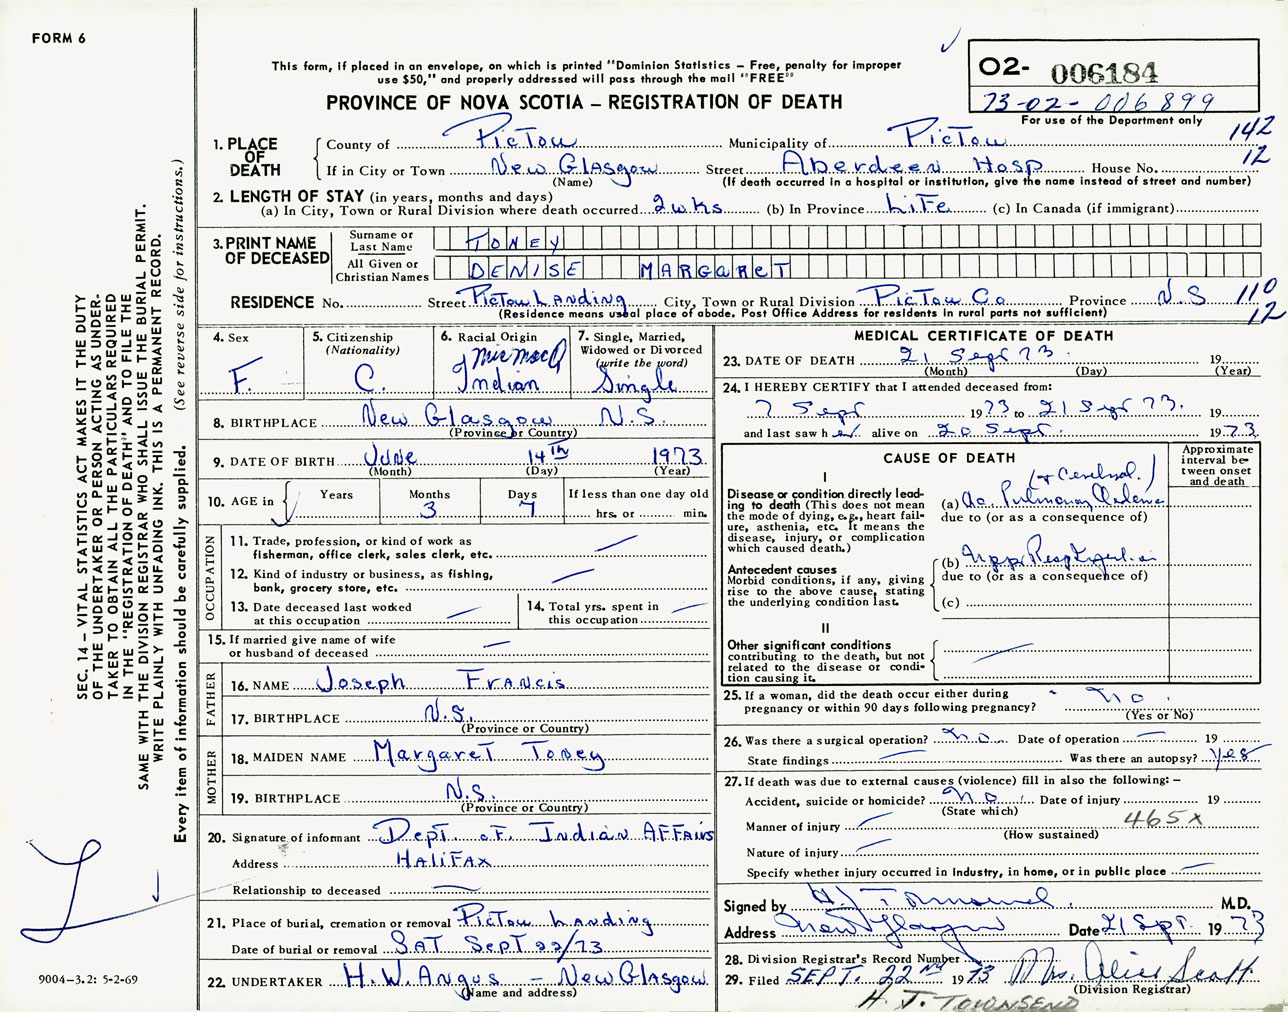 FORM 6
This form, if placed in an envelope, on which is printed "Dominion Statistics – Free, penalty for improper
use $50," and properly addressed will pass through the mail "FREE"
PROVINCE OF NOVA SCOTIA – REGISTRATION OF DEATH
O2- 006184
73-02-006899
For use of the Department only
142
12
1. PLACE OF DEATH
County of PicTou Municipality of PicTou
If in City or Town New Glasgow Street Aberdeen Hosp House No.
(Name) (If death occurred in a hospital or institution, give the name instead of street and number)
2. LENGTH OF STAY (in years, months and days)
(a) In City, Town or Rural Division where death occurred 2 wks (b) In Province LiFe (c) In Canada (if immigrant)
3. PRINT NAME OF DECEASED
Surname or Last Name TONEY
All Given or Christian Names DENISE MARGARET
RESIDENCE No. Street PicTou Landing City, Town or Rural Division PicTou Co Province N.S 110
12
(Residence means usual place of abode. Post Office Address for residents in rural parts not sufficient)
4. Sex
F.
5. Citizenship
(Nationality)
C.
6. Racial Origin
MicMac
Indian
7. Single, Married,
Widowed or Divorced
(write the word)
Single
8. BIRTHPLACE New Glasgow N.S.
(Province or Country)
9. DATE OF BIRTH June 14TH 1973
(Month) (Day) (Year)
10. AGE in Years Months Days If less than one day old
3 7 hrs. or min.
OCCUPATION
11. Trade, profession, or kind of work as
fisherman, office clerk, sales clerk, etc. —
12. Kind of industry or business, as fishing,
bank, grocery store, etc. —
13. Date deceased last worked
at this occupation —
14. Total yrs. spent in
this occupation —
15. If married give name of wife
or husband of deceased —
FATHER
16. NAME Joseph Francis
17. BIRTHPLACE N.S.
(Province or Country)
MOTHER
18. MAIDEN NAME Margaret Toney
19. BIRTHPLACE N.S.
(Province or Country)
20. Signature of informant Dept. of Indian AFFairs
Address HaliFax
Relationship to deceased —
21. Place of burial, cremation or removal PicTou Landing
Date of burial or removal SAT SepT 22/73
22. UNDERTAKER H.W. Angus – New Glasgow
(Name and address)
MEDICAL CERTIFICATE OF DEATH
23. DATE OF DEATH 21 Sept 73. 19
(Month) (Day) (Year)
24. I HEREBY CERTIFY that I attended deceased from:
7 Sept 1973 to 21 Sept 73. 19
and last saw her alive on 20 Sept. 1973
CAUSE OF DEATH
Approximate
interval be-
tween onset
and death
I
Disease or condition directly lead-
ing to death (This does not mean
the mode of dying, e.g., heart fail-
ure, asthenia, etc. It means the
disease, injury, or complication
which caused death.)
(+ Cerebral.)
(a) Ac. Pulmonary Oedema
due to (or as a consequence of)
Antecedent causes
Morbid conditions, if any, giving
rise to the above cause, stating
the underlying condition last.
(b) Upp Resp
due to (or as a consequence of)
(c)
II
Other significant conditions
contributing to the death, but not
related to the disease or condi-
tion causing it. —
25. If a woman, did the death occur either during
pregnancy or within 90 days following pregnancy? no.
(Yes or No)
26. Was there a surgical operation? no. Date of operation — 19
State findings — Was there an autopsy? yes
27. If death was due to external causes (violence) fill in also the following: –
Accident, suicide or homicide? no. Date of injury 19
(State which)
465x
Manner of injury —
(How sustained)
Nature of injury —
Specify whether injury occurred in Industry, in home, or in public place —
Signed by H. J. Townsend. M.D.
Address New Glasgow Date 21 Sept. 1973
28. Division Registrar's Record Number
29. Filed SEPT. 22ND 1973 Mrs. Alice Scott
(Division Registrar)
H. J. TOWNSEND
SEC. 14 – VITAL STATISTICS ACT MAKES IT THE DUTY
OF THE UNDERTAKER OR PERSON ACTING AS UNDER-
TAKER TO OBTAIN ALL THE PARTICULARS REQUIRED
IN THE "REGISTRATION OF DEATH" AND TO FILE THE
SAME WITH THE DIVISION REGISTRAR WHO SHALL ISSUE THE BURIAL PERMIT.
WRITE PLAINLY WITH UNFADING INK. THIS IS A PERMANENT RECORD.
Every item of information should be carefully supplied. (See reverse side for instructions.)
9004–3.2: 5-2-69